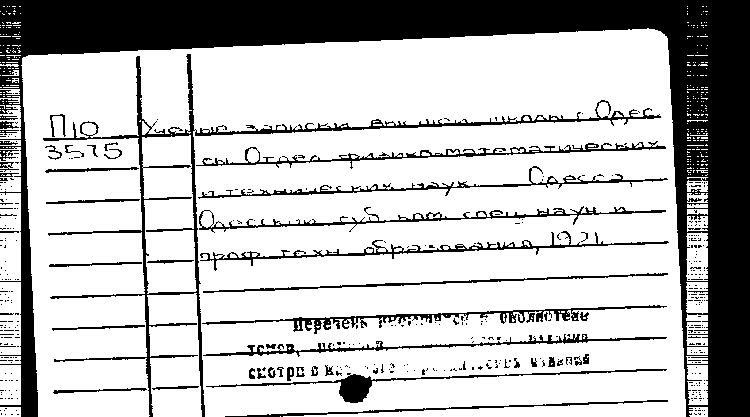 П10 Ученые записки высшей школы г. Одес
3575 сы Отдел физико-математических
и технических наук Одесса,
Одесский губ ком спец наук и
проф техн образования, 1921.
Перечень имеющихся в библиотеке
томов, издания
смотри в изданий